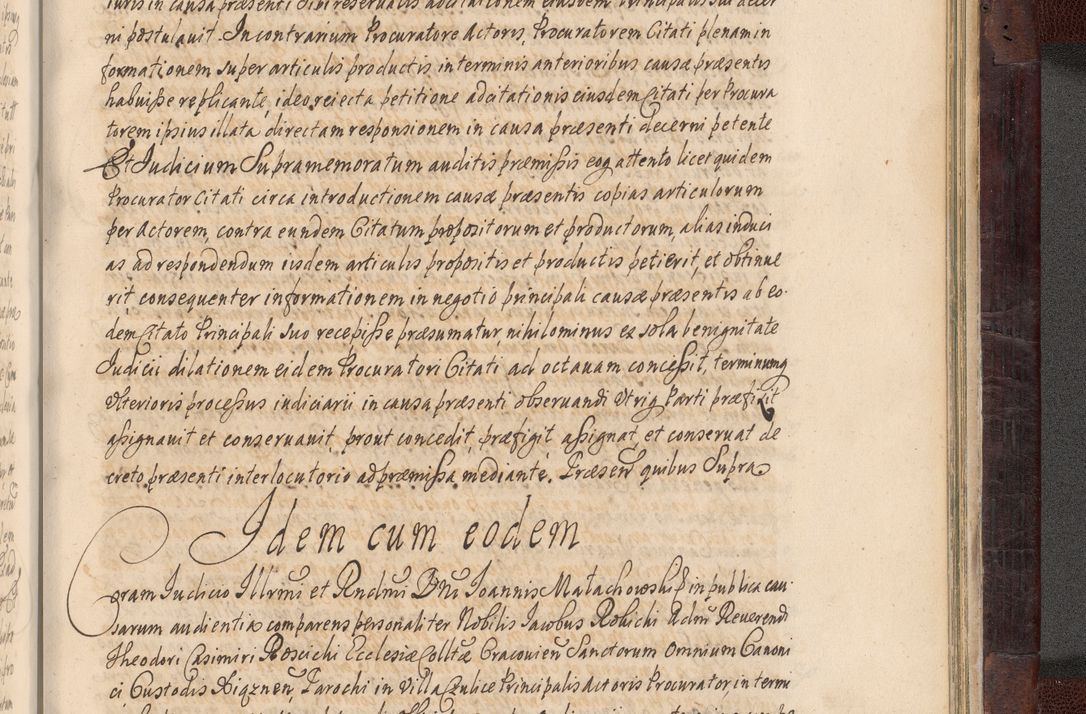 iuris in causa præsenti sibi reservatis adcitationem eiusdem Principalis sui decer
ni postulauit. In contrarium Procuratore Actoris, Procuratorem Citati plenam in
formationem super articulis productis in terminis anterioribus causæ præsentis
habuisse replicante, ideo reiecta petitione adcitationis eiusdem Citati per Procura
torem ipsius illata directam responsionem in causa præsenti decerni petente
Et Judicium Supramemoratum auditis præmissis eoq attento licet quidem
Procurator Citati circa introductionem causæ præsentis copias articulorum
per Actorem, contra eundem Citatum propositorum et productorum, alias induci
as ad respondendum iisdem articulis propositis et productis petierit, et obtinue
rit consequenter informationem in negotio principali causæ præsentis ab eo-
dem Citato Principali suo recepisse præsumatur, nihilominus ex sola benignitate
Judicii dilationem eidem Procuratori Citati ad octauam concessit, terminumq
Vlterioris processus iudiciarii in causa præsenti obseruandi Vtriq Parti præfixit
assignauit et conseruauit, prout concedit, præfigit, assignat, et conseruat de
creto præsenti interlocutorio ad præmissa mediante. Præsent quibus Supra
Idem cum eodem
Coram Iudicio Illrmi et Rndmi Dni Ioannis Małachowski in publica cau-
sarum audientia comparens personaliter Nobilis Iacobus Rohichi Admn Reverendi
Theodori Casimiri Roscichi Ecclesiæ Colltæ Cracouien Sanctorum Omnium Canoni
ci Custodis Parochi in Villa Czulice Principalis Actoris Procurator in termi